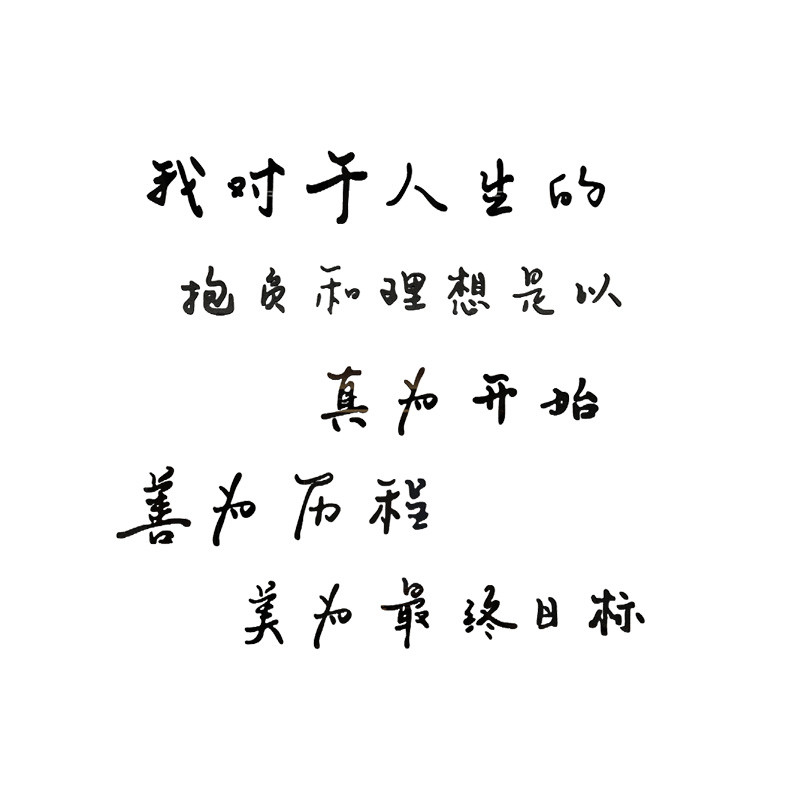 我对于人生的
抱负和理想是以
真为开始
善为历程
美为最终目标